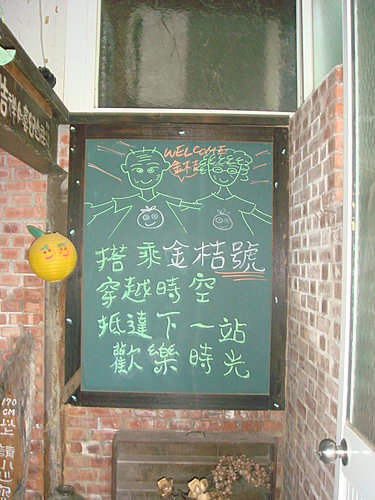 WELCOME
金桔
搭乘金桔號
穿越時空
抵達下一站
歡樂時光
170
CM
以上
請小